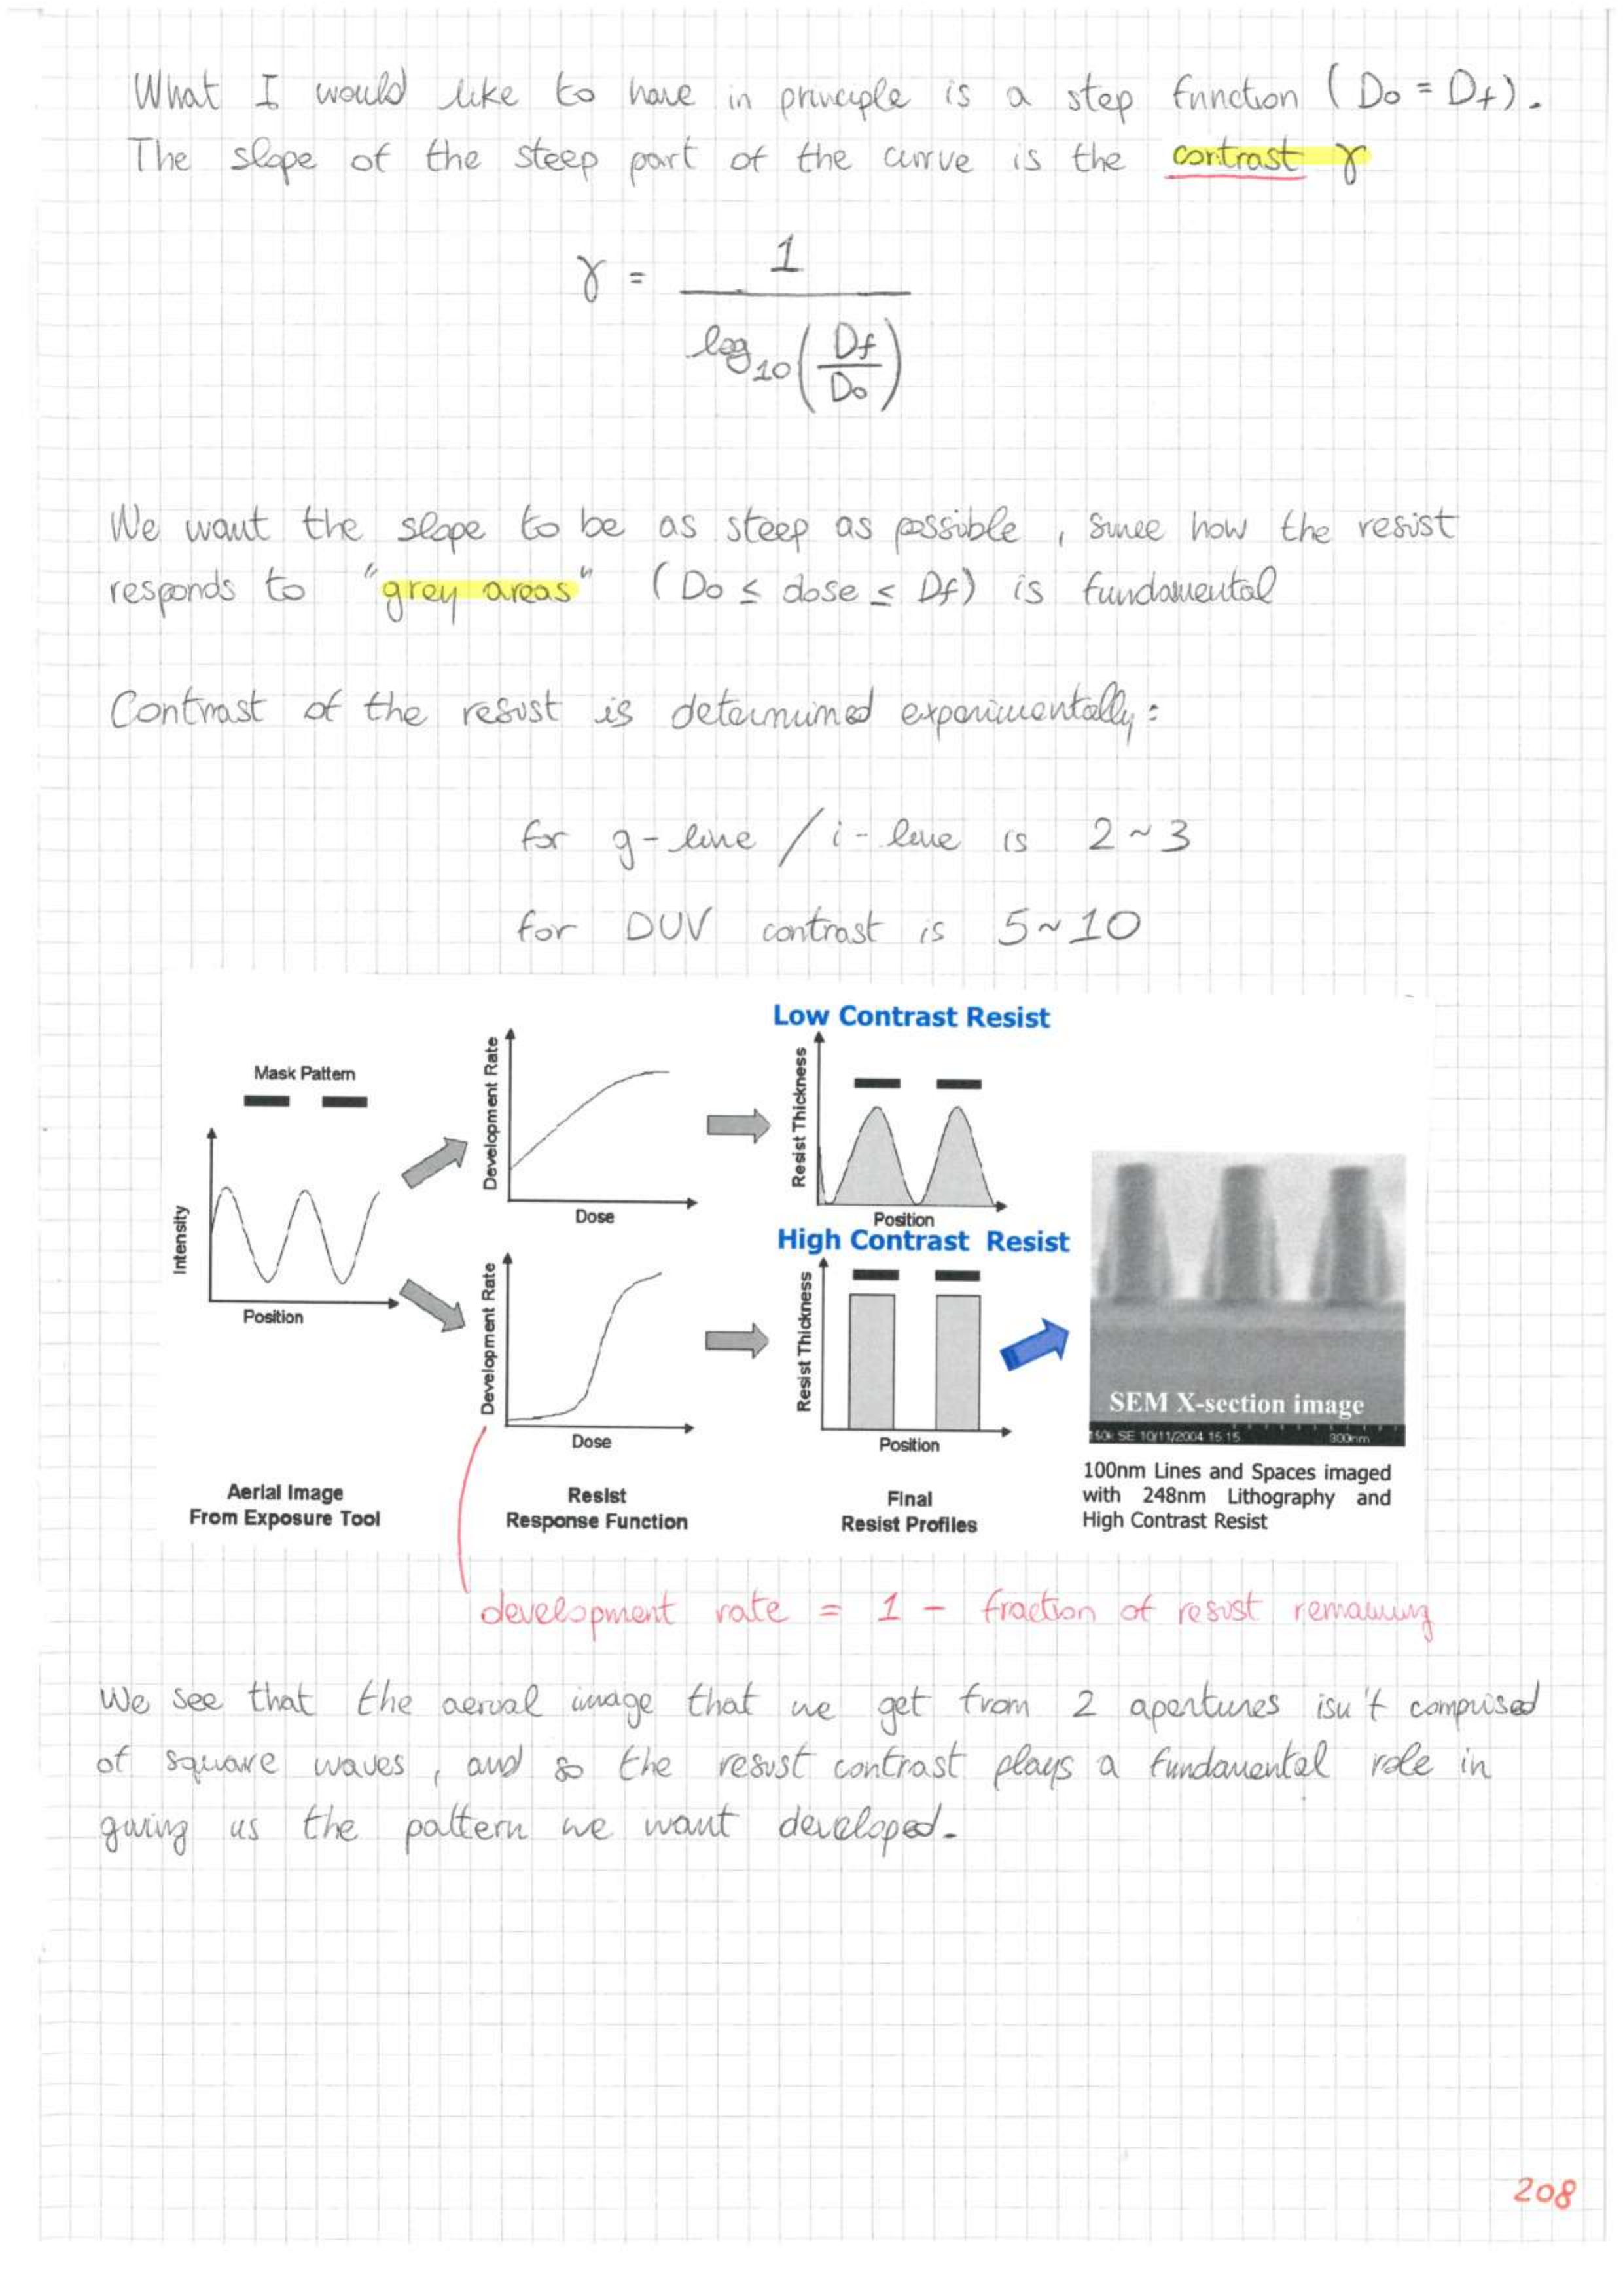 What I would like to have in principle is a step function (D₀ = Df).
The slope of the steep part of the curve is the contrast γ
γ = 1 / log₁₀(Df/D₀)
We want the slope to be as steep as possible, since how the resist
responds to "grey areas" (D₀ ≤ dose ≤ Df) is fundamental
Contrast of the resist is determined experimentally:
for g-line / i-line is 2~3
for DUV contrast is 5~10
Mask Pattern
Intensity
Position
Development Rate
Dose
Low Contrast Resist
Resist Thickness
Position
Development Rate
Dose
High Contrast Resist
Resist Thickness
Position
SEM X-section image
SE 10/11/2004 15:15 300nm
Aerial Image
From Exposure Tool
Resist
Response Function
Final
Resist Profiles
100nm Lines and Spaces imaged
with 248nm Lithography and
High Contrast Resist
development rate = 1 - fraction of resist remaining
We see that the aerial image that we get from 2 apertures isn't comprised
of square waves, and so the resist contrast plays a fundamental role in
giving us the pattern we want developed.
208